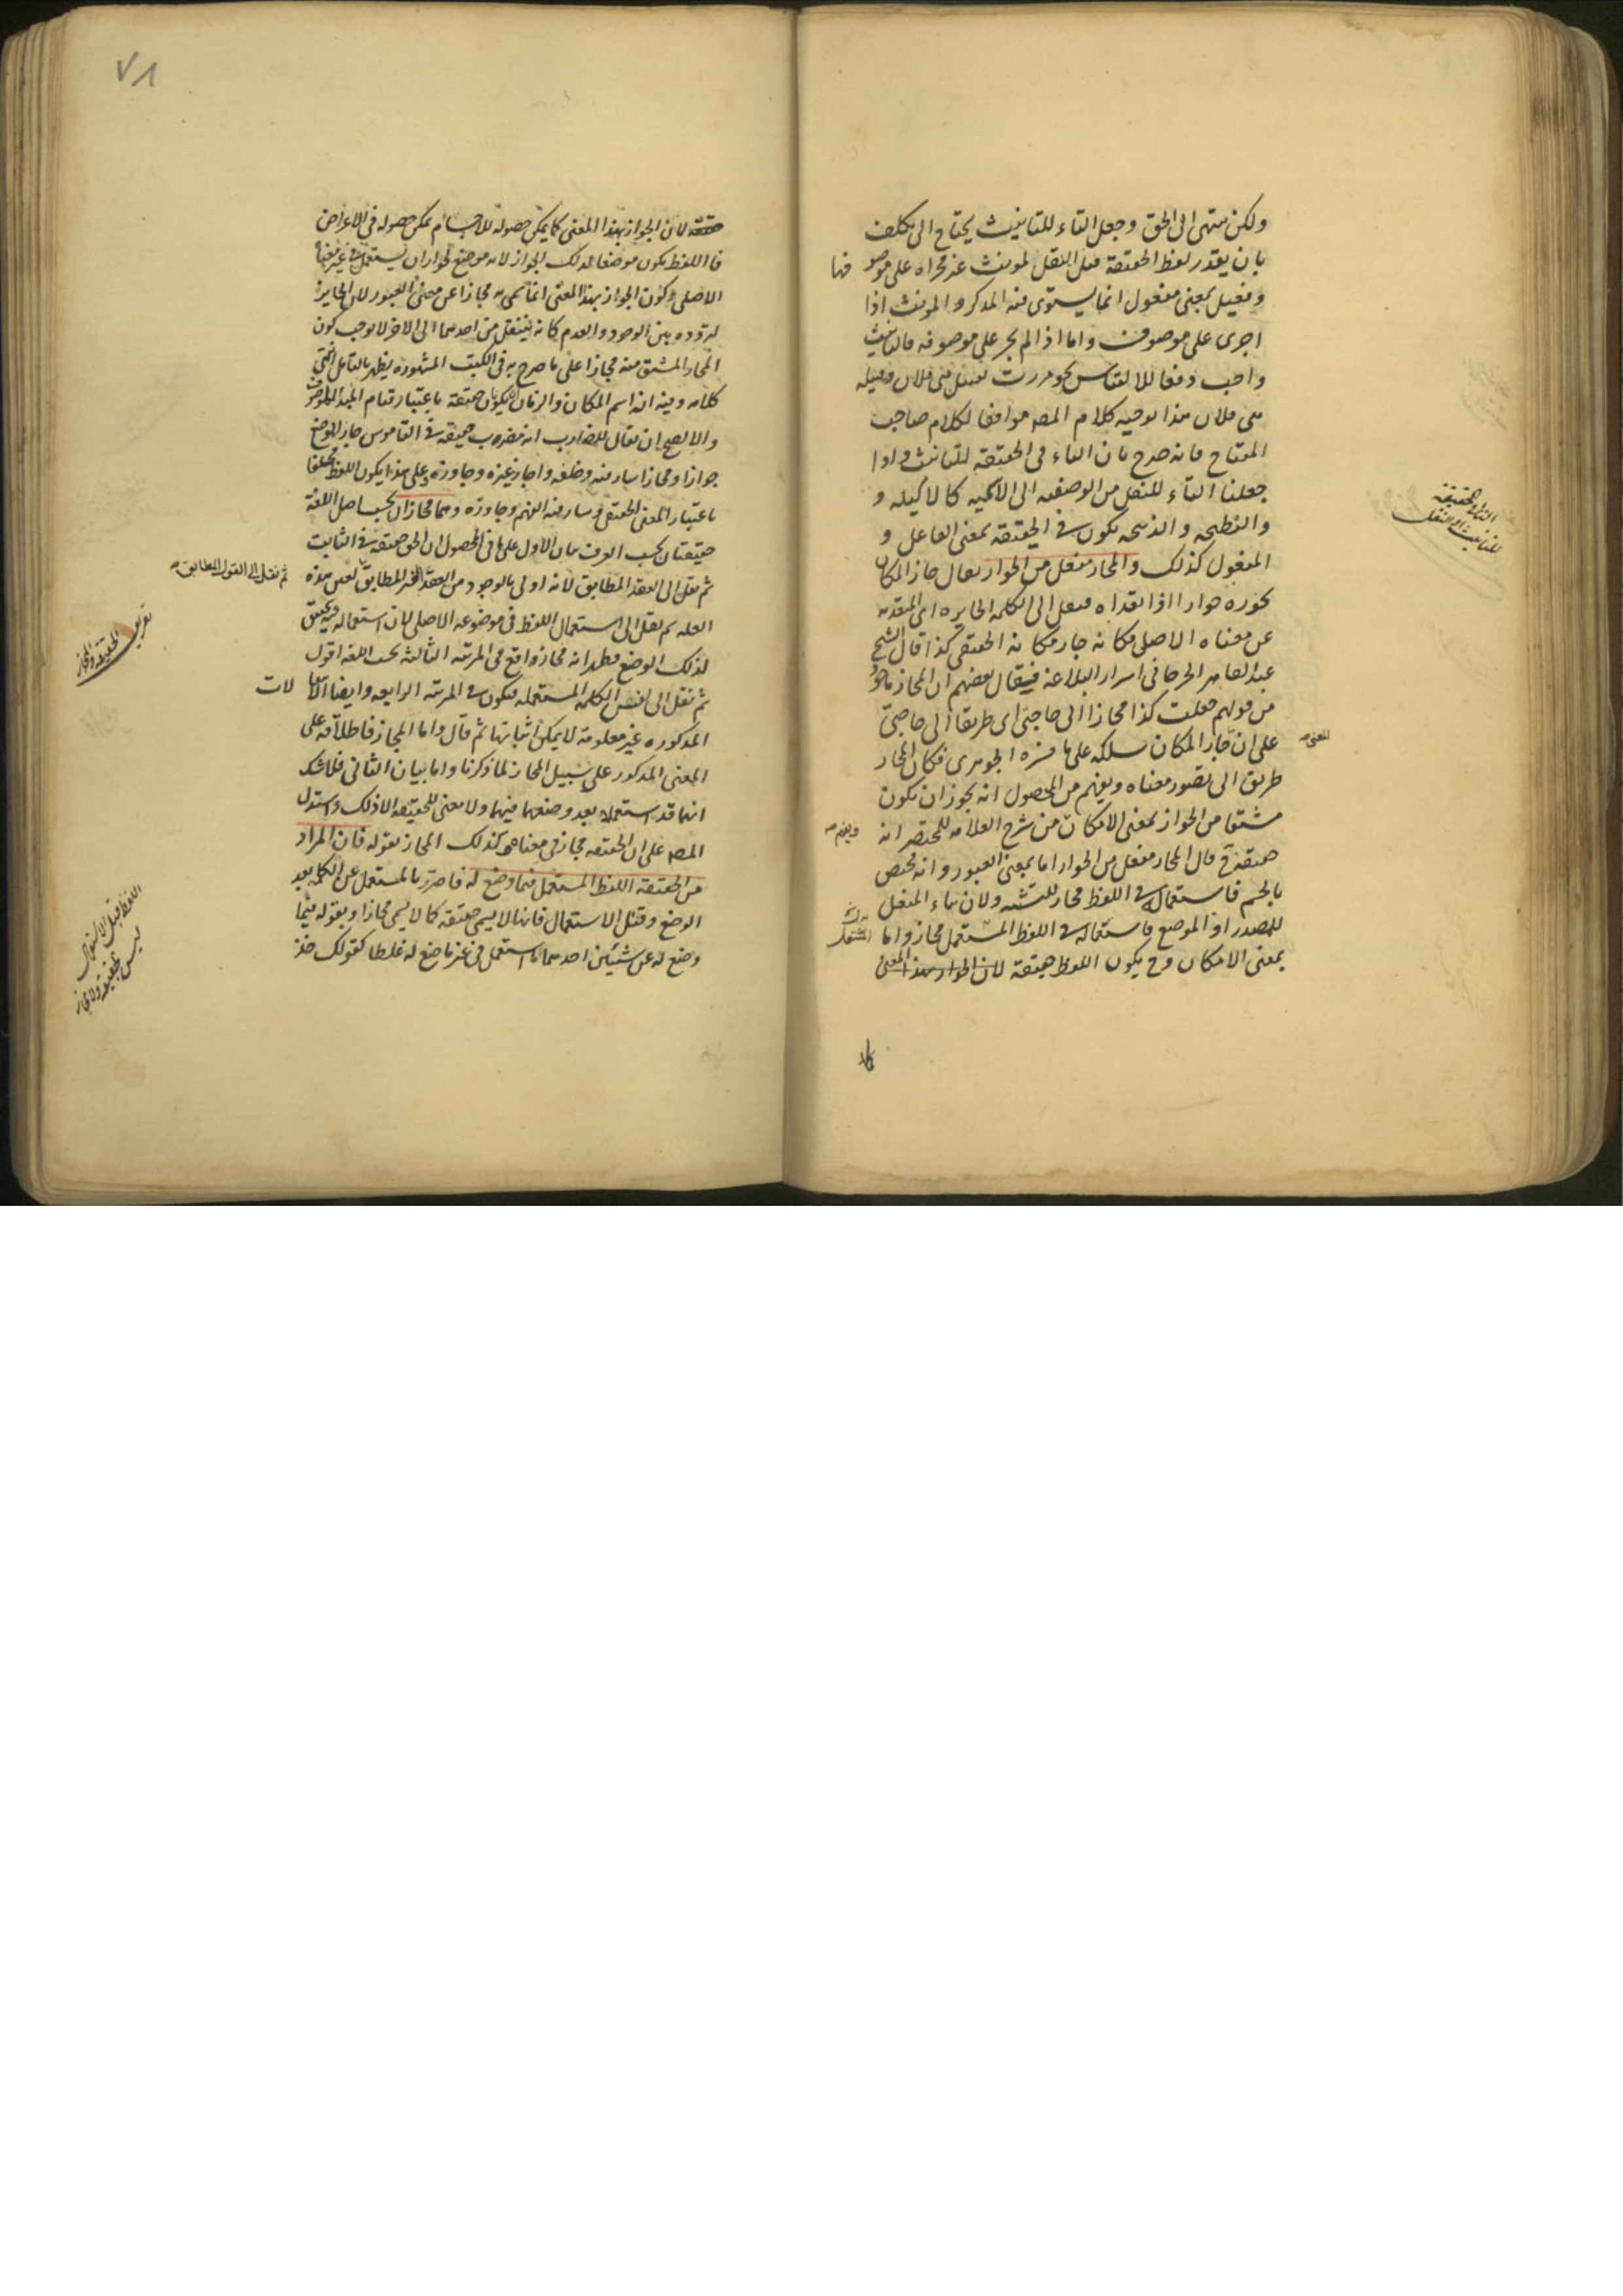 ولكن ينتهى الى الحق وجعل التاء للتانيث يحتاج الى تكلف
بان يقدر لفظ الحقيقة قبل النقل لمونث غير مجراه على موصو فها
وفعيل بمعنى مفعول انما يستوى فيه المذكر والمونث اذا
اجرى على موصوف واما اذا لم يجر على موصوفه فالتانيث
واجب دفعا للالتباس نحو مررت بقتيل بنى فلان وقتيله
بنى فلان هذا توجيه كلام المصـ موافقا لكلام صاحب
المفتاح فانه صرح بان التاء فى الحقيقة للتانيث واذا
جعلنا التاء للنقل من الوصفيه الى الاسميه كالاكيله و
والنطيحه والذبيحه يكون فى الحقيقة بمعنى الفاعل و
المفعول كذلك والمجاز مفعل من الجواز يقال جاز المكان
يجوزه جوازا اذا تعداه فنقل الى الكلمه الجايزه اى المتعديه
عن معناه الاصلى مكانه جاز مكانه الحقيقى كذا قال الشيخ
عبد القاهر الجرجانى اسرار البلاغة فيقال بعضهم ان المجاز ماخوذ
من قولهم جعلت كذا مجازا الى حاجتى اى طريقا الى حاجتى
على ان جاز المكان سلكه على ما فسره الجوهرى فكان المجاز
طريق الى تصور معناه ويفهم من المحصول انه يجوز ان يكون
مشتقا من الجواز بمعنى الامكان من شرح العلامه للمختصر انه
حقيقة قال المجاز مفعل من الجواز اما بمعنى العبور وانه مختص
بالجسم فاستعماله فى اللفظ مجاز للتشبه ولان بناء المفعل
للمصدر او الموضع فاستعماله فى اللفظ المستعمل مجاز واما
بمعنى الامكان وح يكون اللفظ حقيقة لان الجواز بهذا المعنى
التاء فى الحقيقة
للتانيث او للنقل
٧٨
حقيقة لان الجواز بهذا المعنى كما يمكن حصوله للاجسام يمكن حصوله فى الاعراض
فاللفظ يكون موضعا لذلك الجواز لانه موضع لجواز ان يستعمل فى غير معناه
الاصلى وكون الجواز بهذا المعنى انما سمى به مجازا عن معنى العبور لان الجايز
لتردده بين الوجود والعدم كانه ينتقل من احدهما الى الاخر لا يوجب كون
المجاز المشتق منه مجازا على ما صرح به فى الكتب المشهوره يظهر بالتامل انتهى
كلامه وفيه ان اسم المكان والزمان لا يكون حقيقة باعتبار قيام المبدا بالموصوف
والا لصح ان يقال للضارب انه مضرب حقيقة فى القاموس جاز الموضع
جوازا ومجازا سار فيه وخلفه واجاز غيره وجاوزه وعلى هذا يكون اللفظ مختلفا
باعتبار المعنى الحقيقى وسار فيه الفهم وجاوزه وهما مجازان بحسب اصل اللغة
حقيقتان بحسب العرف بيان الاول على ما فى المحصول ان الحق حقيقة فى الثابت
ثم نقل الى العقد المطابق لانه اولى بالوجود من العقد الغير المطابق لعين هذه
العله ثم نقل الى استعمال اللفظ فى موضوعه الاصلى لان استعماله فيه تحقيق
لذلك الوضع فظهر انه مجاز واقع فى المرتبه الثالثه بحسب اللغه اقول
ثم نقل الى نفس الكلمه المستعمله فيكون فى المرتبه الرابعه وايضا الانتقالات
المذكوره غير معلومة لا يمكن اثباتها ثم قال واما المجاز فاطلاقه على
المعنى المذكور على سبيل المجاز لما ذكرنا واما بيان الثانى فلا شك
انهما قد استعملا بعد وضعهما فيهما ولا معنى للحقيقه الا ذلك واستدل
المصـ على ان الحقيقه مجاز فى معناه وكذلك المجاز بقوله فان المراد
من الحقيقة اللفظ المستعمل فيما وضع له فاحترز بالمستعمل عن الكلمه بعد
الوضع وقبل الاستعمال فانها لا يسمى حقيقه كما لا يسمى مجازا وبقوله فيما
وضع له عن شيئين احدهما ما استعمل فى غير ما وضع له غلطا كقولك خذ
ثم نقل الى القول المطابق صـ
تعريف
الحقيقه والمجاز
اللفظ قبل الاستعمال
ليس بحقيقة ولا مجاز